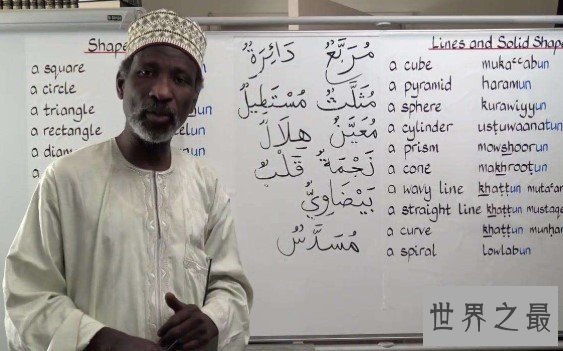 a square
a circle
a triangle
a rectangle
مُرَبَّعٌ دَائِرَةٌ
مُثَلَّثٌ مُسْتَطِيلٌ
مُعَيَّنٌ هِلَالٌ
نَجْمَةٌ قَلْبٌ
بَيْضَاوِيٌّ
مُسَدَّسٌ
Lines and Solid Shape
a cube mukaᶜᶜabun
a pyramid haramun
a sphere kurawiyyun
a cylinder usṭuwaanatun
a prism mowshoorun
a cone makhrooṭun
a wavy line khaṭṭun
a straight line khaṭṭun
a curve khaṭṭun
a spiral lowlabun
世界之最